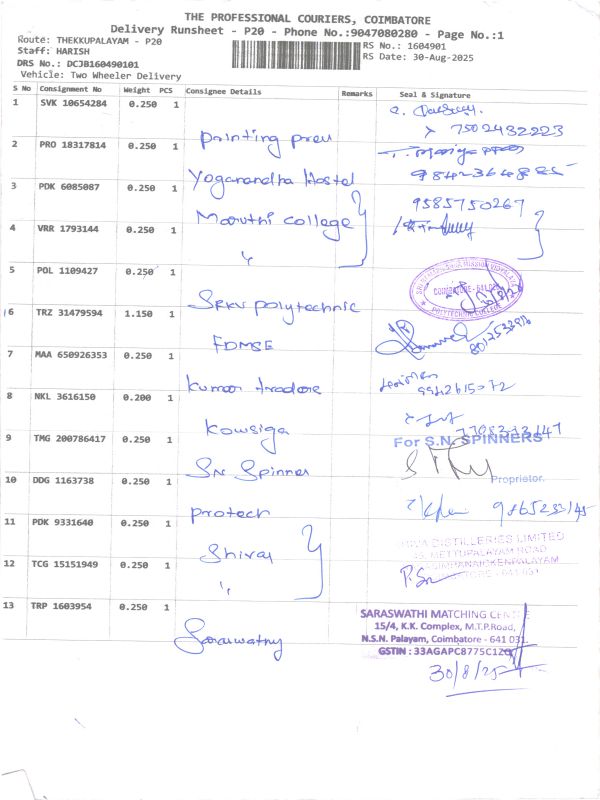 THE PROFESSIONAL COURIERS, COIMBATORE
Delivery Runsheet - P20 - Phone No.:9047080280 - Page No.:1
Route: THEKKUPALAYAM - P20
RS No.: 1604901
Staff: HARISH
RS Date: 30-Aug-2025
DRS No.: DCJB160490101
Vehicle: Two Wheeler Delivery
S No Consignment No Weight PCS Consignee Details Remarks Seal & Signature
1 SVK 10654284 0.250 1
Printing press 7502432223
2 PRO 18317814 0.250 1
Yoganandha Hostel
3 PDK 6085087 0.250 1
Maruthi college 9585750267
4 VRR 1793144 0.250 1
"
5 POL 1109427 0.250 1
SRKV polytechnic COIMBATORE - 641 020
POLYTECHNIC COLLEGE
6 TRZ 31479594 1.150 1
FDMSE
7 MAA 650926353 0.250 1
Kumar tradore
8 NKL 3616150 0.200 1
Kowsiga
9 TMG 200786417 0.250 1
For S.N. SPINNERS
SN Spinner
Proprietor.
10 DDG 1163738 0.250 1
Protech
11 PDK 9331640 0.250 1
DISTILLERIES LIMITED
METTUPALAYAM ROAD
Shivas
12 TCG 15151949 0.250 1
"
13 TRP 1603954 0.250 1
Saraswathy
SARASWATHI MATCHING
15/4, K.K. Complex, M.T.P.Road,
N.S.N. Palayam, Coimbatore - 641 031.
GSTIN : 33AGAPC8775C1
30/8/25